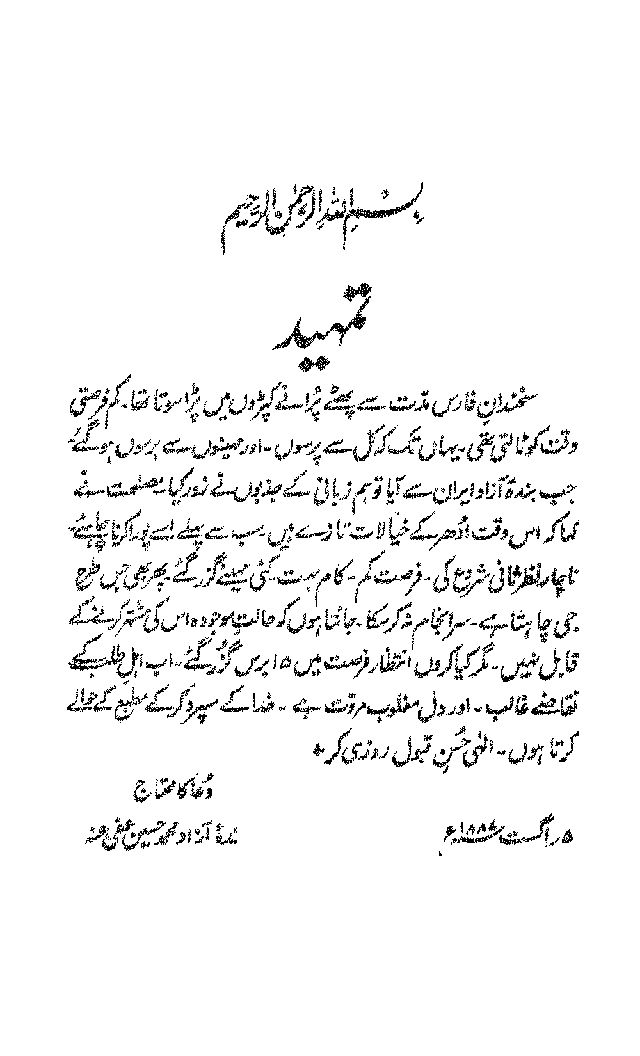 بسم اللہ الرحمٰن الرحیم
تمہید
سخندانِ فارس مدت سے پھٹے پُرانے کپڑوں میں پڑا سوتا تھا۔ کم فرصتی
وقت کو ٹالتی تھی۔ یہاں تک کہ کل سے پرسوں۔ اور مہینوں سے برسوں ہو گئے۔
جب بندۂ آزاد ایران سے آیا تو ہم زبانی کے جذبوں نے زور کیا۔ مصلحت نے
کہا کہ اس وقت اُدھر کے خیالات تازے ہیں۔ سب سے پہلے اسے پورا کرنا چاہئے۔
ناچار نظر ثانی شروع کی۔ فرصت کم۔ کام بہت۔ کئی مہینے گزر گئے۔ پھر بھی جس طرح
جی چاہتا ہے۔ سرانجام نہ کر سکا۔ جانتا ہوں کہ حالتِ موجودہ اس کی مشتہر کرنے کے
قابل نہیں۔ مگر کیا کروں انتظار فرصت میں ۱۵ برس گزر گئے۔ اب اہلِ طلب کے
تقاضے غالب۔ اور دل مغلوب مروّت ہے۔ خدا کے سپرد کر کے مطبع کے حوالے
کرتا ہوں۔ الٰہی حُسنِ قبول روزی کر
دُعا کا محتاج
بندۂ آزاد محمد حسین عفی عنہ
۵ اگست ۱۸۸۷ء